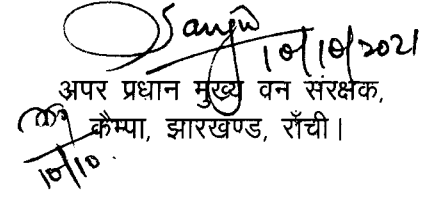 Sanjiv
10/10/2021
अपर प्रधान मुख्य वन संरक्षक,
कैम्पा, झारखण्ड, राँची।
10/10.